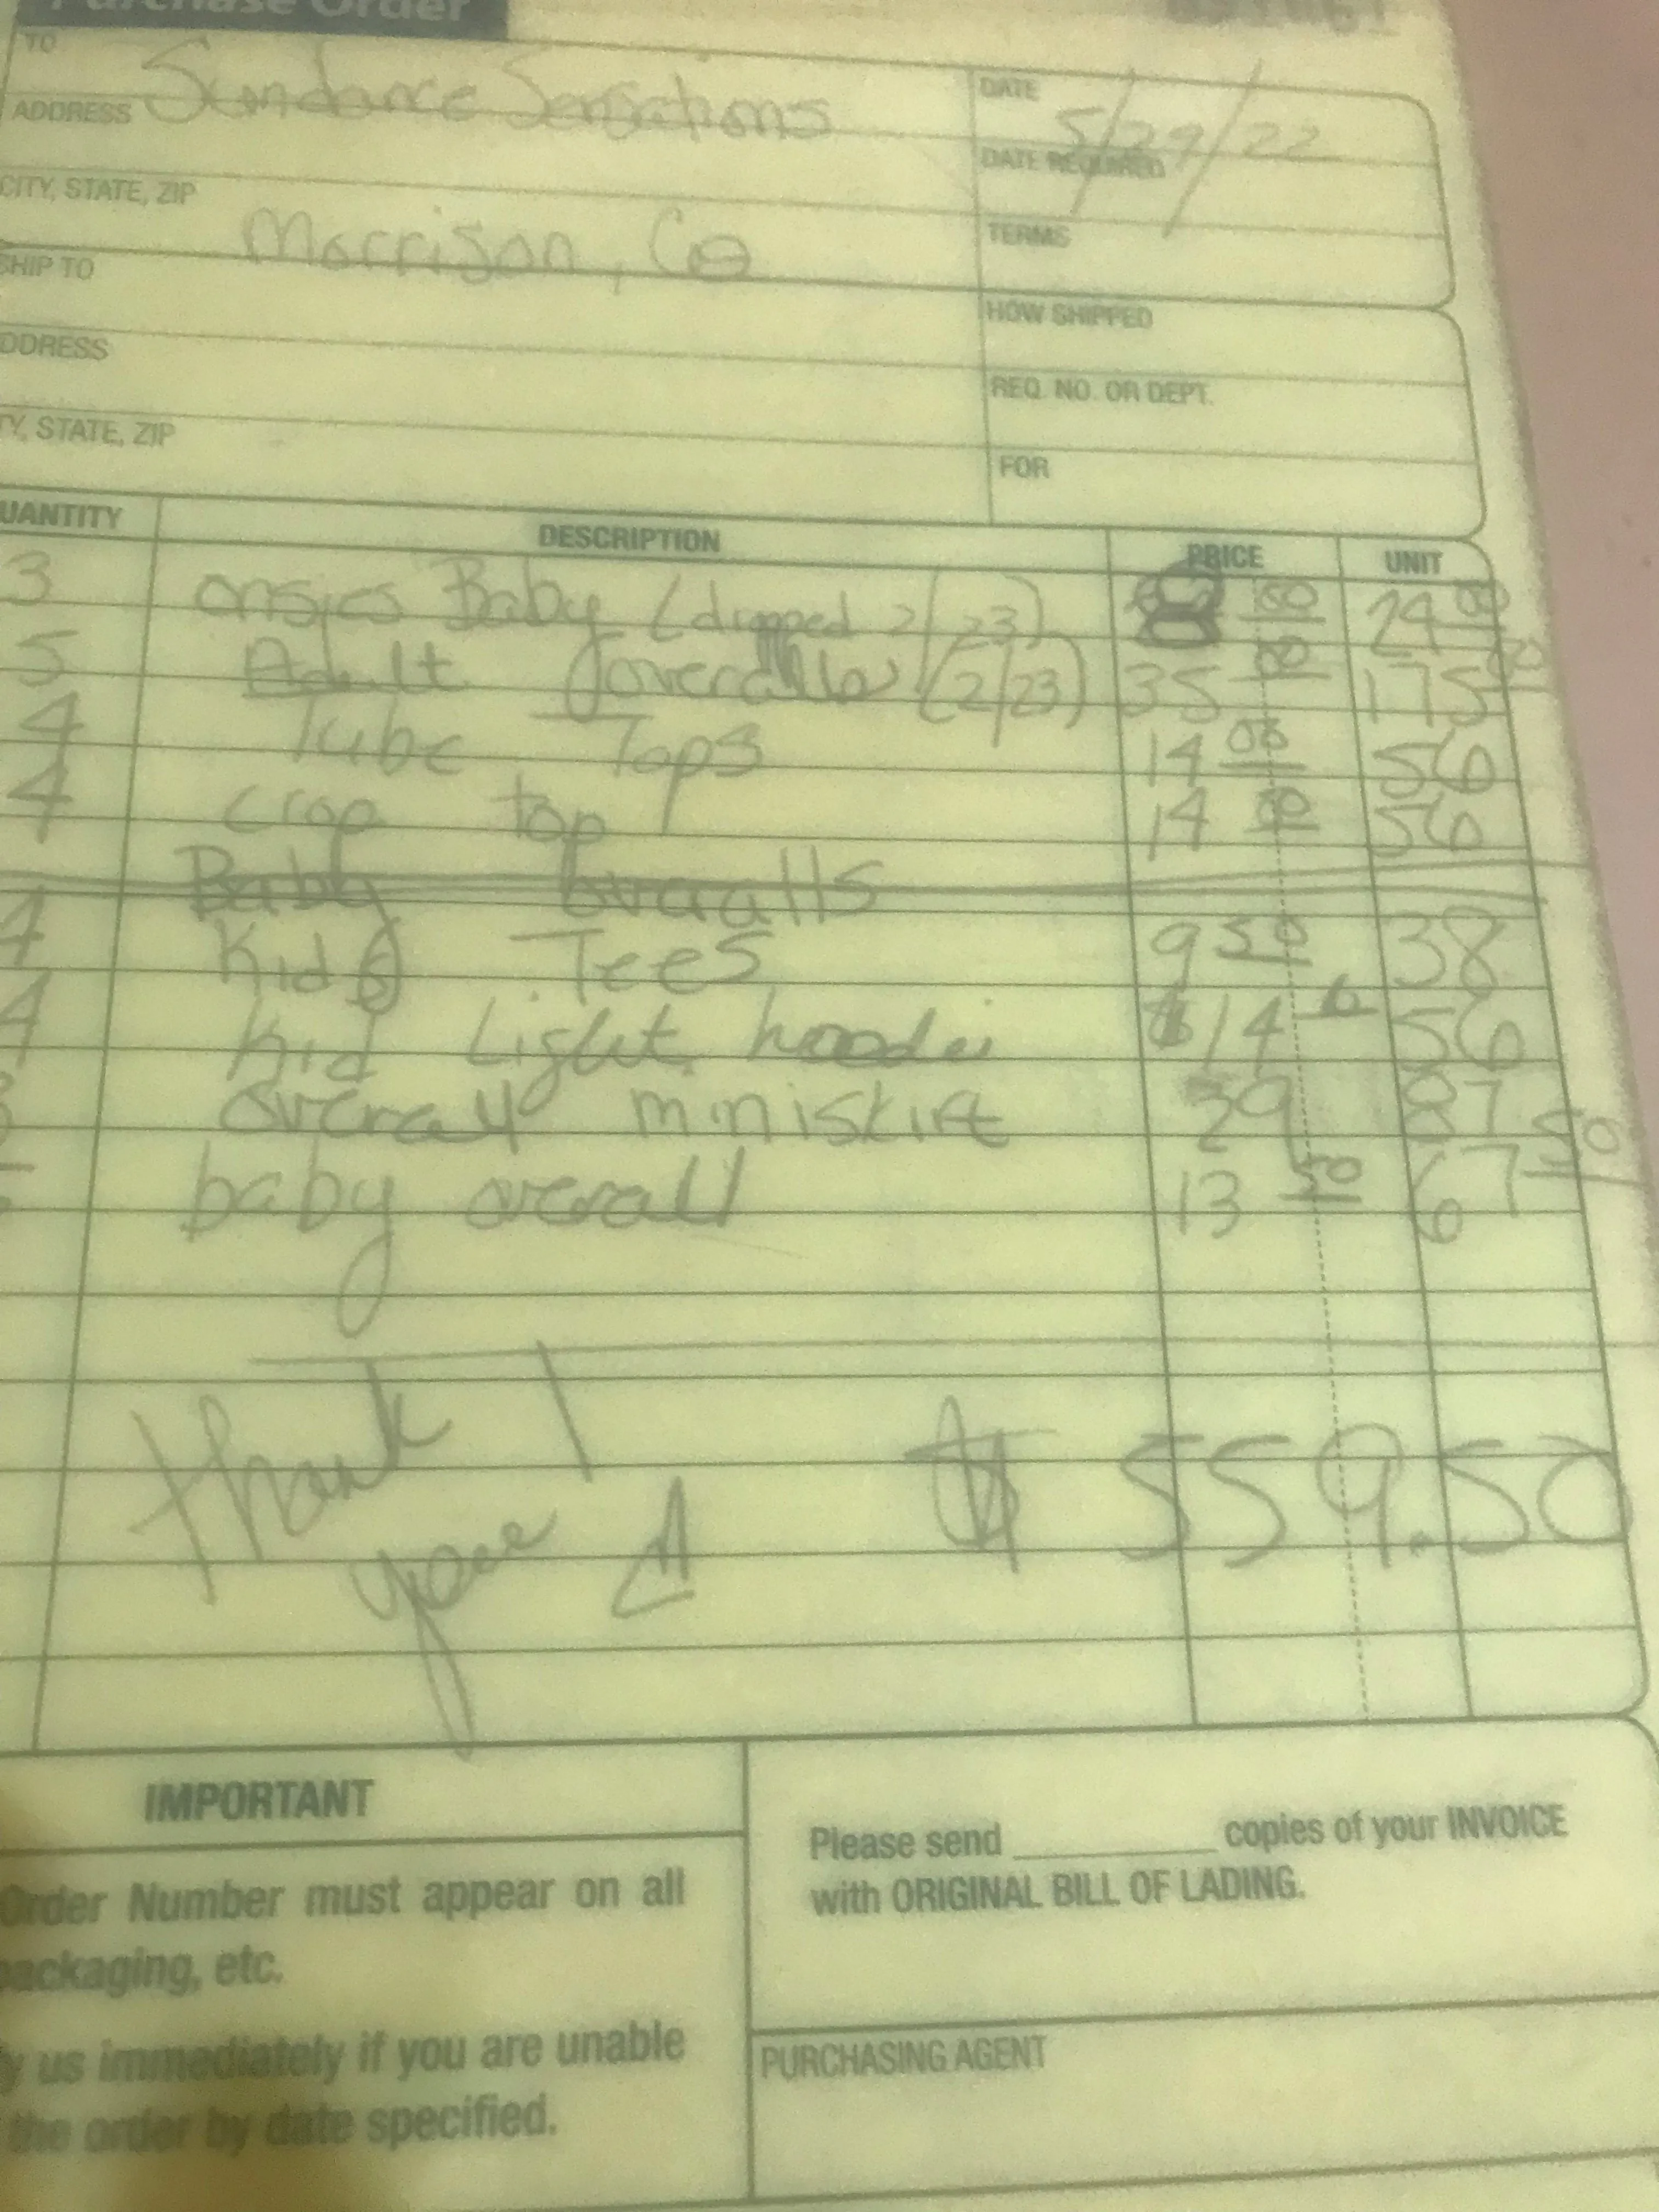 Purchase Order
TO
Sundance Sensations
DATE
5/29/22
ADDRESS
DATE REQUIRED
CITY, STATE, ZIP
Morrison, Co
TERMS
SHIP TO
HOW SHIPPED
ADDRESS
REQ. NO. OR DEPT.
TY, STATE, ZIP
FOR
UANTITY DESCRIPTION PRICE UNIT
3 onsies Baby (dropped 2/23) 8 00 24 00
5 Adult overalls (2/23) 35 00 175 00
4 Tube Tops 14 00 56
4 crop top 14 00 56
Baby overalls
4 Kids Tees 9 50 38
4 Kid Light hoodie $14 56
3 overall miniskirt 29 87
5 baby overall 13 50 67 50
Thank
you!
$ 559.50
IMPORTANT
Order Number must appear on all
packaging, etc.
y us immediately if you are unable
the order by date specified.
Please send ________ copies of your INVOICE
with ORIGINAL BILL OF LADING.
PURCHASING AGENT